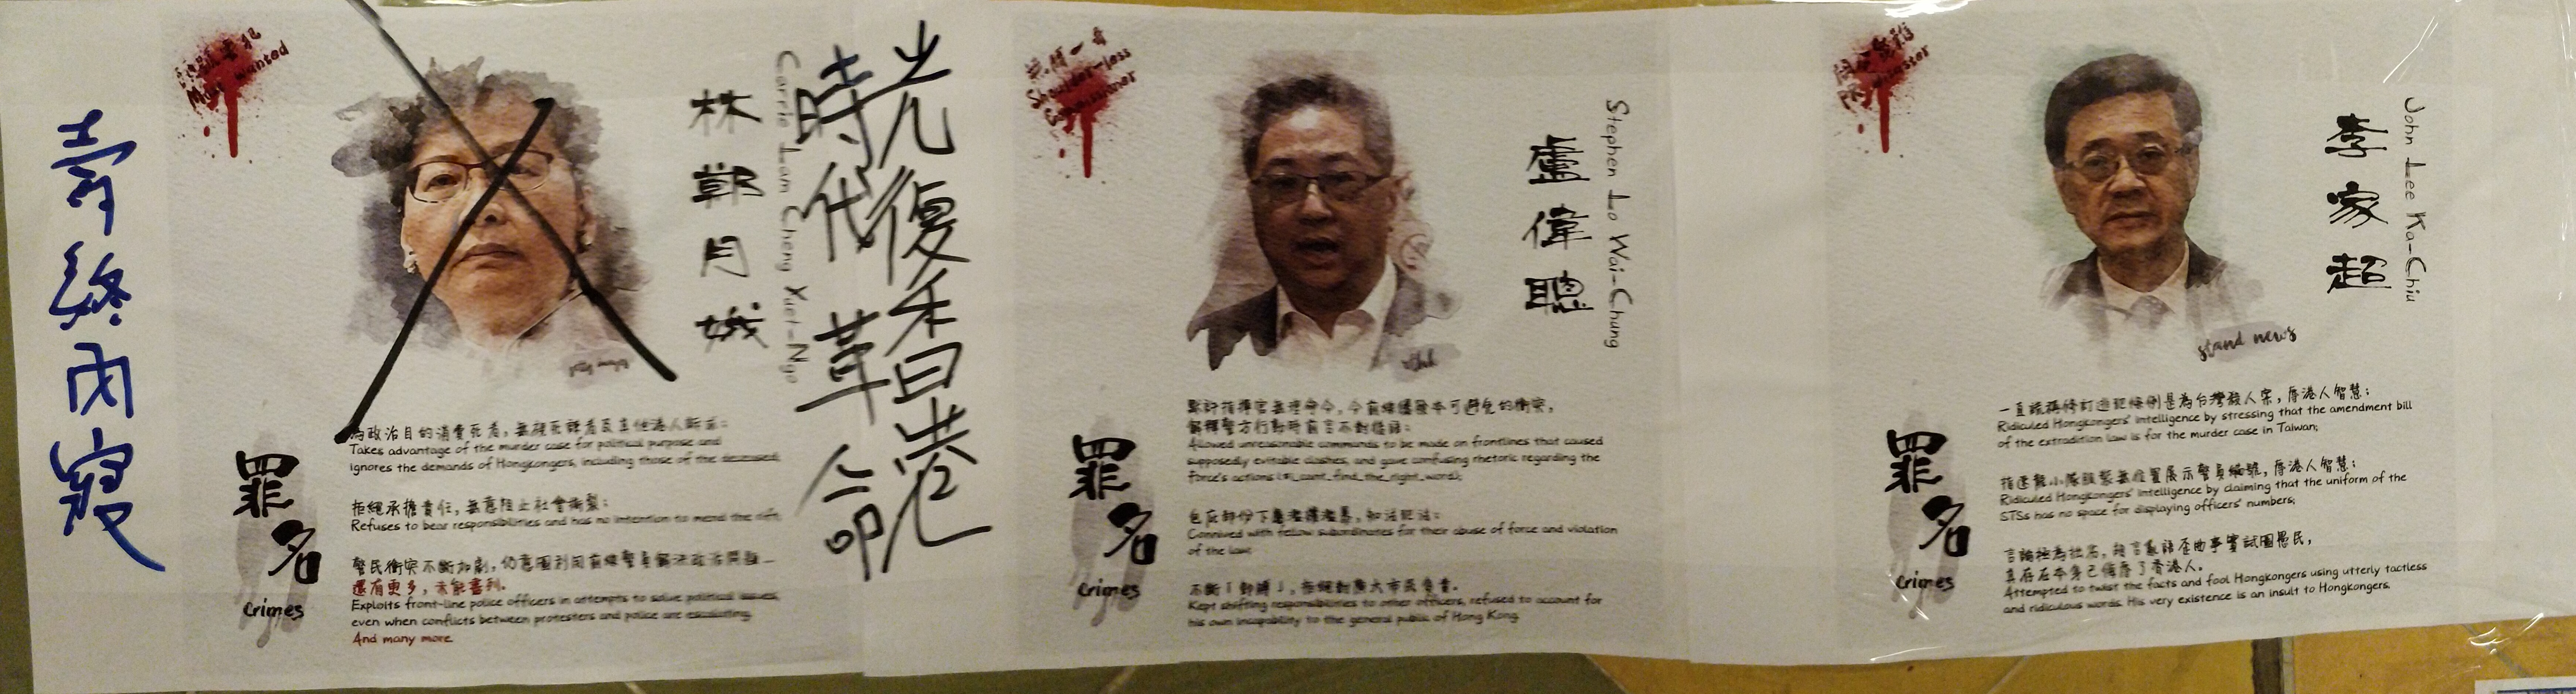 壽終內寢
Most wanted
林鄭月娥
Carrie Lam Cheng Yuet-Ngo
罪名
Crimes
為政治目的消費死者，無視死難者及其他港人訴求；
Takes advantage of the murder case for political purpose and
ignores the demands of Hongkongers, including those of the deceased;
拒絕承擔責任，無意阻止社會撕裂；
Refuses to bear responsibilities and has no intention to mend the rift;
警民衝突不斷加劇，仍意圖利用前線警員解決政治問題…
還有更多，未能盡列。
Exploits front-line police officers in attempts to solve political issues,
even when conflicts between protesters and police are escalating.
And many more.
光復香港
時代革命
Shoulder-less
Commissioner
盧偉聰
Stephen Lo Wai-Chung
罪名
Crimes
解釋警方行動時前言不對後語；
Allowed unreasonable commands to be made on frontlines that caused
supposedly evitable clashes, and gave confusing rhetoric regarding the
force's actions (#i_cant_find_the_right_word);
Connived with fellow subordinates for their abuse of force and violation
of the law;
不斷「卸膊」，拒絕對廣大市民負責。
Kept shifting responsibilities to other officers, refused to account for
his own incapability to the general public of Hong Kong.
李家超
John Lee Ka-Chiu
stand news
罪名
Crimes
一直訛稱修訂逃犯條例是為台灣殺人案，辱港人智慧；
Ridiculed Hongkongers' intelligence by stressing that the amendment bill
of the extradition law is for the murder case in Taiwan;
指速龍小隊服裝無位置展示警員編號，辱港人智慧；
Ridiculed Hongkongers' intelligence by claiming that the uniform of the
STSs has no space for displaying officers' numbers;
其存在本身已侮辱了香港人。
Attempted to twist the facts and fool Hongkongers using utterly tactless
and ridiculous words. His very existence is an insult to Hongkongers.